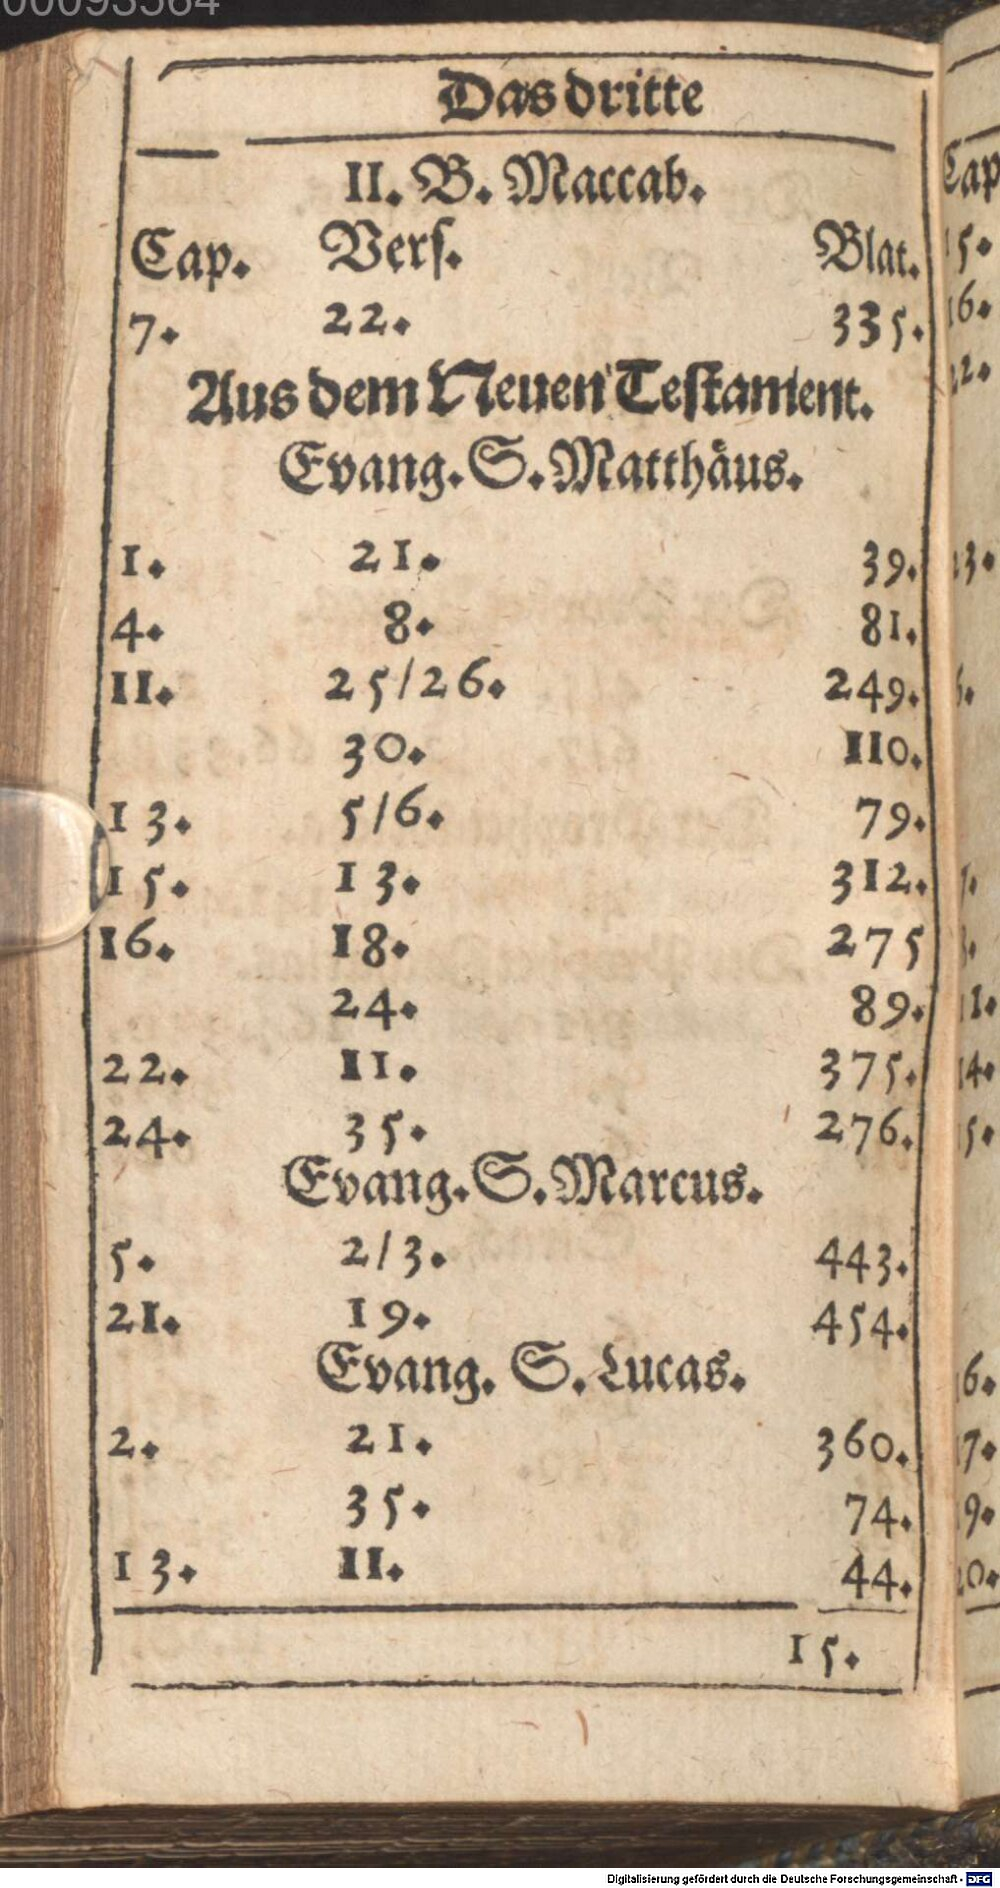 00093564
Das dritte
II. B. Maccab.
Cap. Verſ. Blat.
7. 22. 335.
Aus dem Neuen Teſtament.
Evang. S. Matthäus.
1. 21. 39.
4. 8. 81.
11. 25/26. 249.
30. 110.
13. 5/6. 79.
15. 13. 312.
16. 18. 275
24. 89.
22. 11. 375.
24. 35. 276.
Evang. S. Marcus.
5. 2/3. 443.
21. 19. 454.
Evang. S. Lucas.
2. 21. 360.
35. 74.
13. 11. 44.
15.
Cap
Digitalisierung gefördert durch die Deutsche Forschungsgemeinschaft - DFG